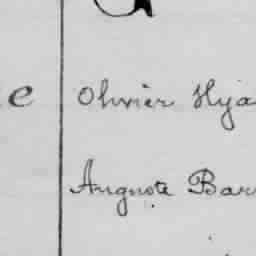 G
e Olivier Hya
Auguste Bar